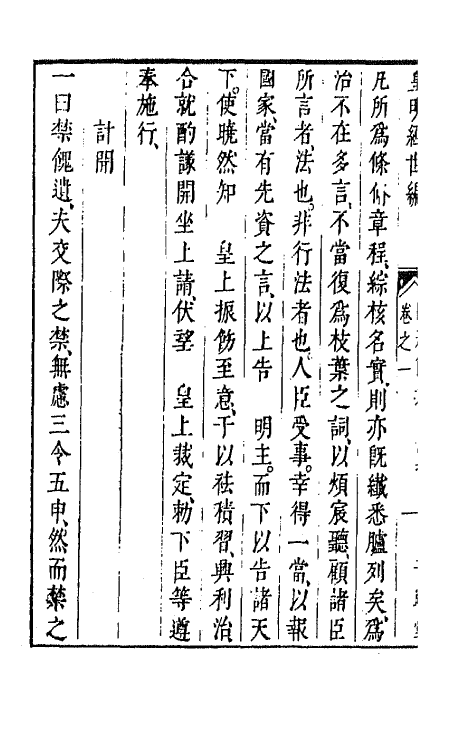 皇明經世編
卷之一
凡所爲條佈章程、綜核名實、則亦既纖悉臚列矣、爲
治不在多言、不當復爲枝葉之詞、以煩宸聽、顧諸臣
所言者、法也。非行法者也。人臣受事。幸得一當、以報
國家、當有先資之言、以上告　明主。而下以告諸天
下。使曉然知　皇上振飭至意、于以祛積習、興利治
合就酌議開坐上請、伏望　皇上裁定、勅下臣等遵
奉施行、
計開
一曰禁餽遺、夫交際之禁、無慮三令五申、然而禁之